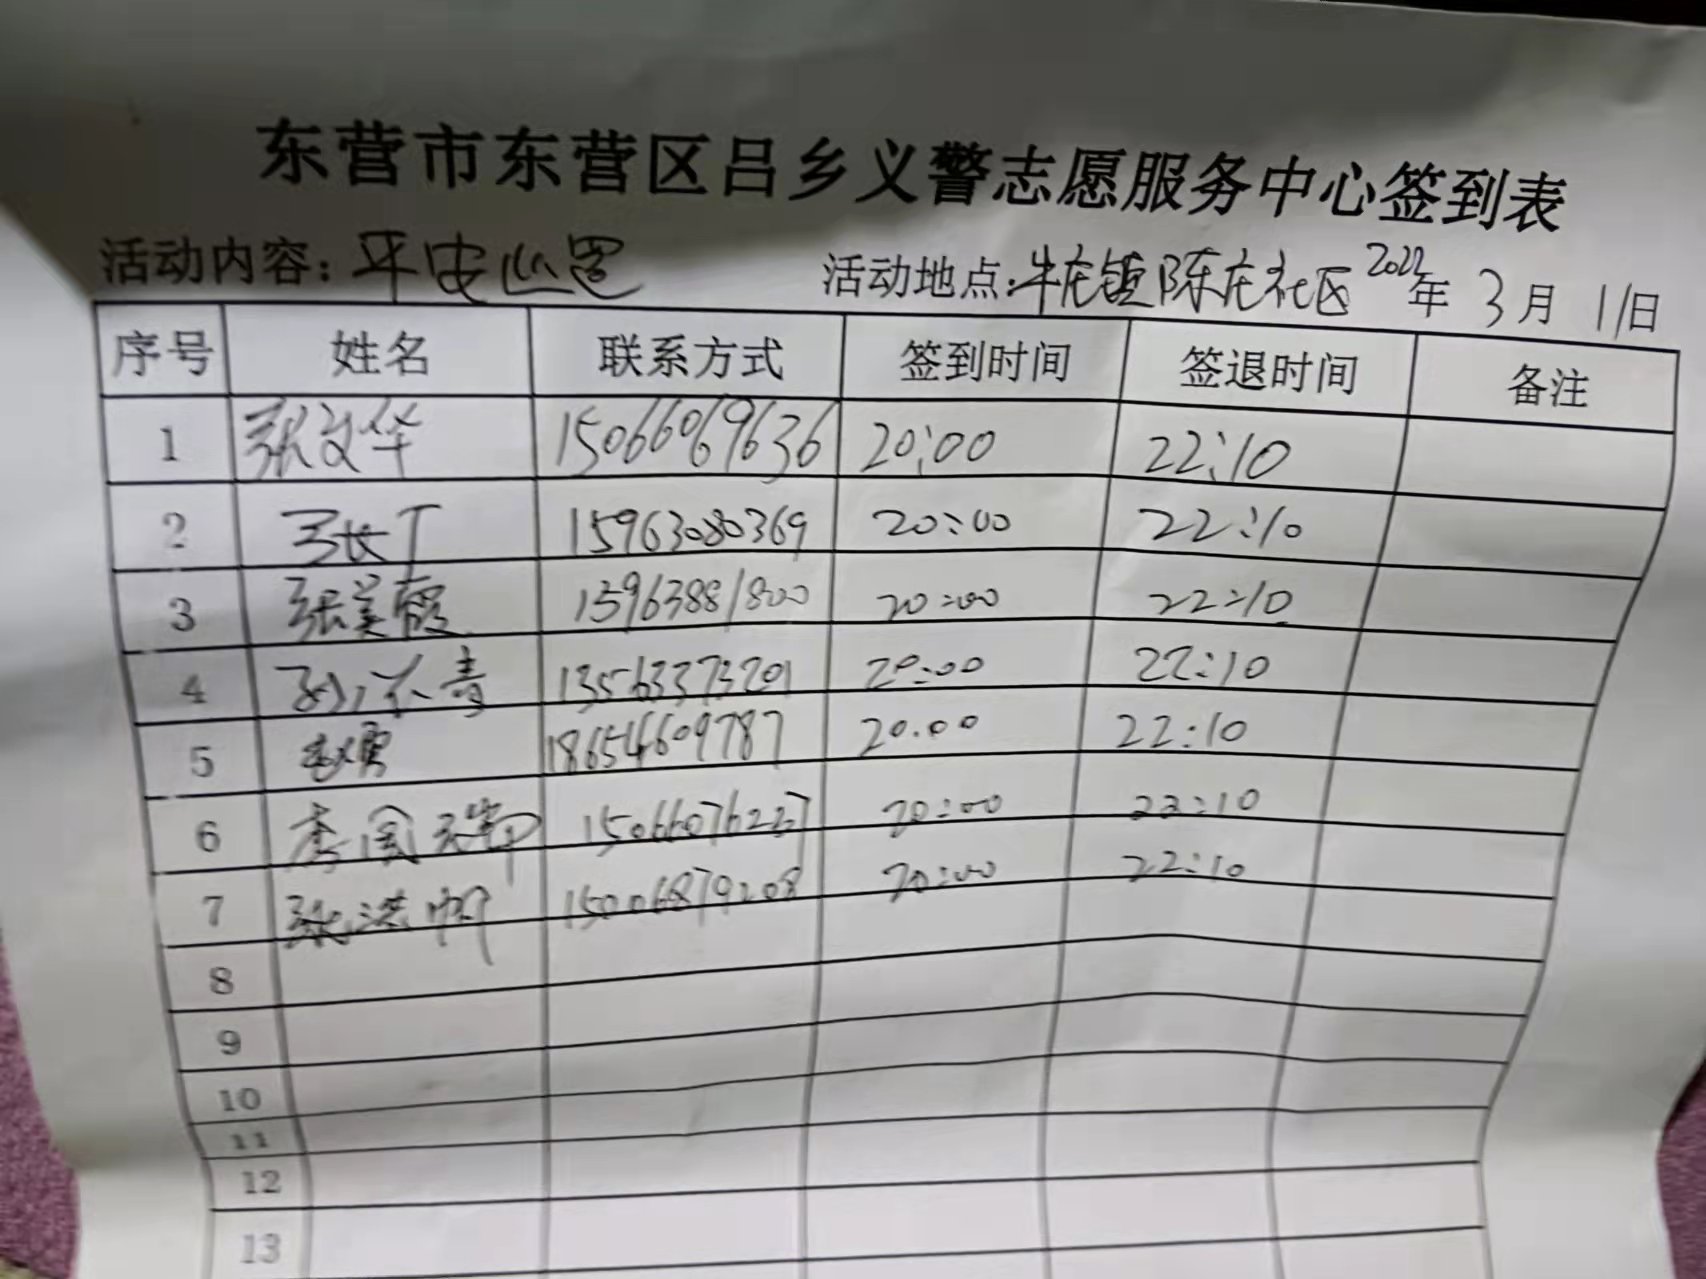 东营市东营区吕乡义警志愿服务中心签到表
活动内容：平安巡逻 活动地点：牛庄镇陈庄社区 2022年 3月 11日
序号 姓名 联系方式 签到时间 签退时间 备注
1 张文华 15066069636 20:00 22:10
2 15963080369 20:00 22:10
3 张美霞 15963881800 20:00 22:10
4 青 13563373201 20:00 22:10
5 赵勇 18654609787 20:00 22:10
6 李国 15066076227 20:00 22:10
7 张洪 15006879208 20:00 22:10
8
9
10
11
12
13